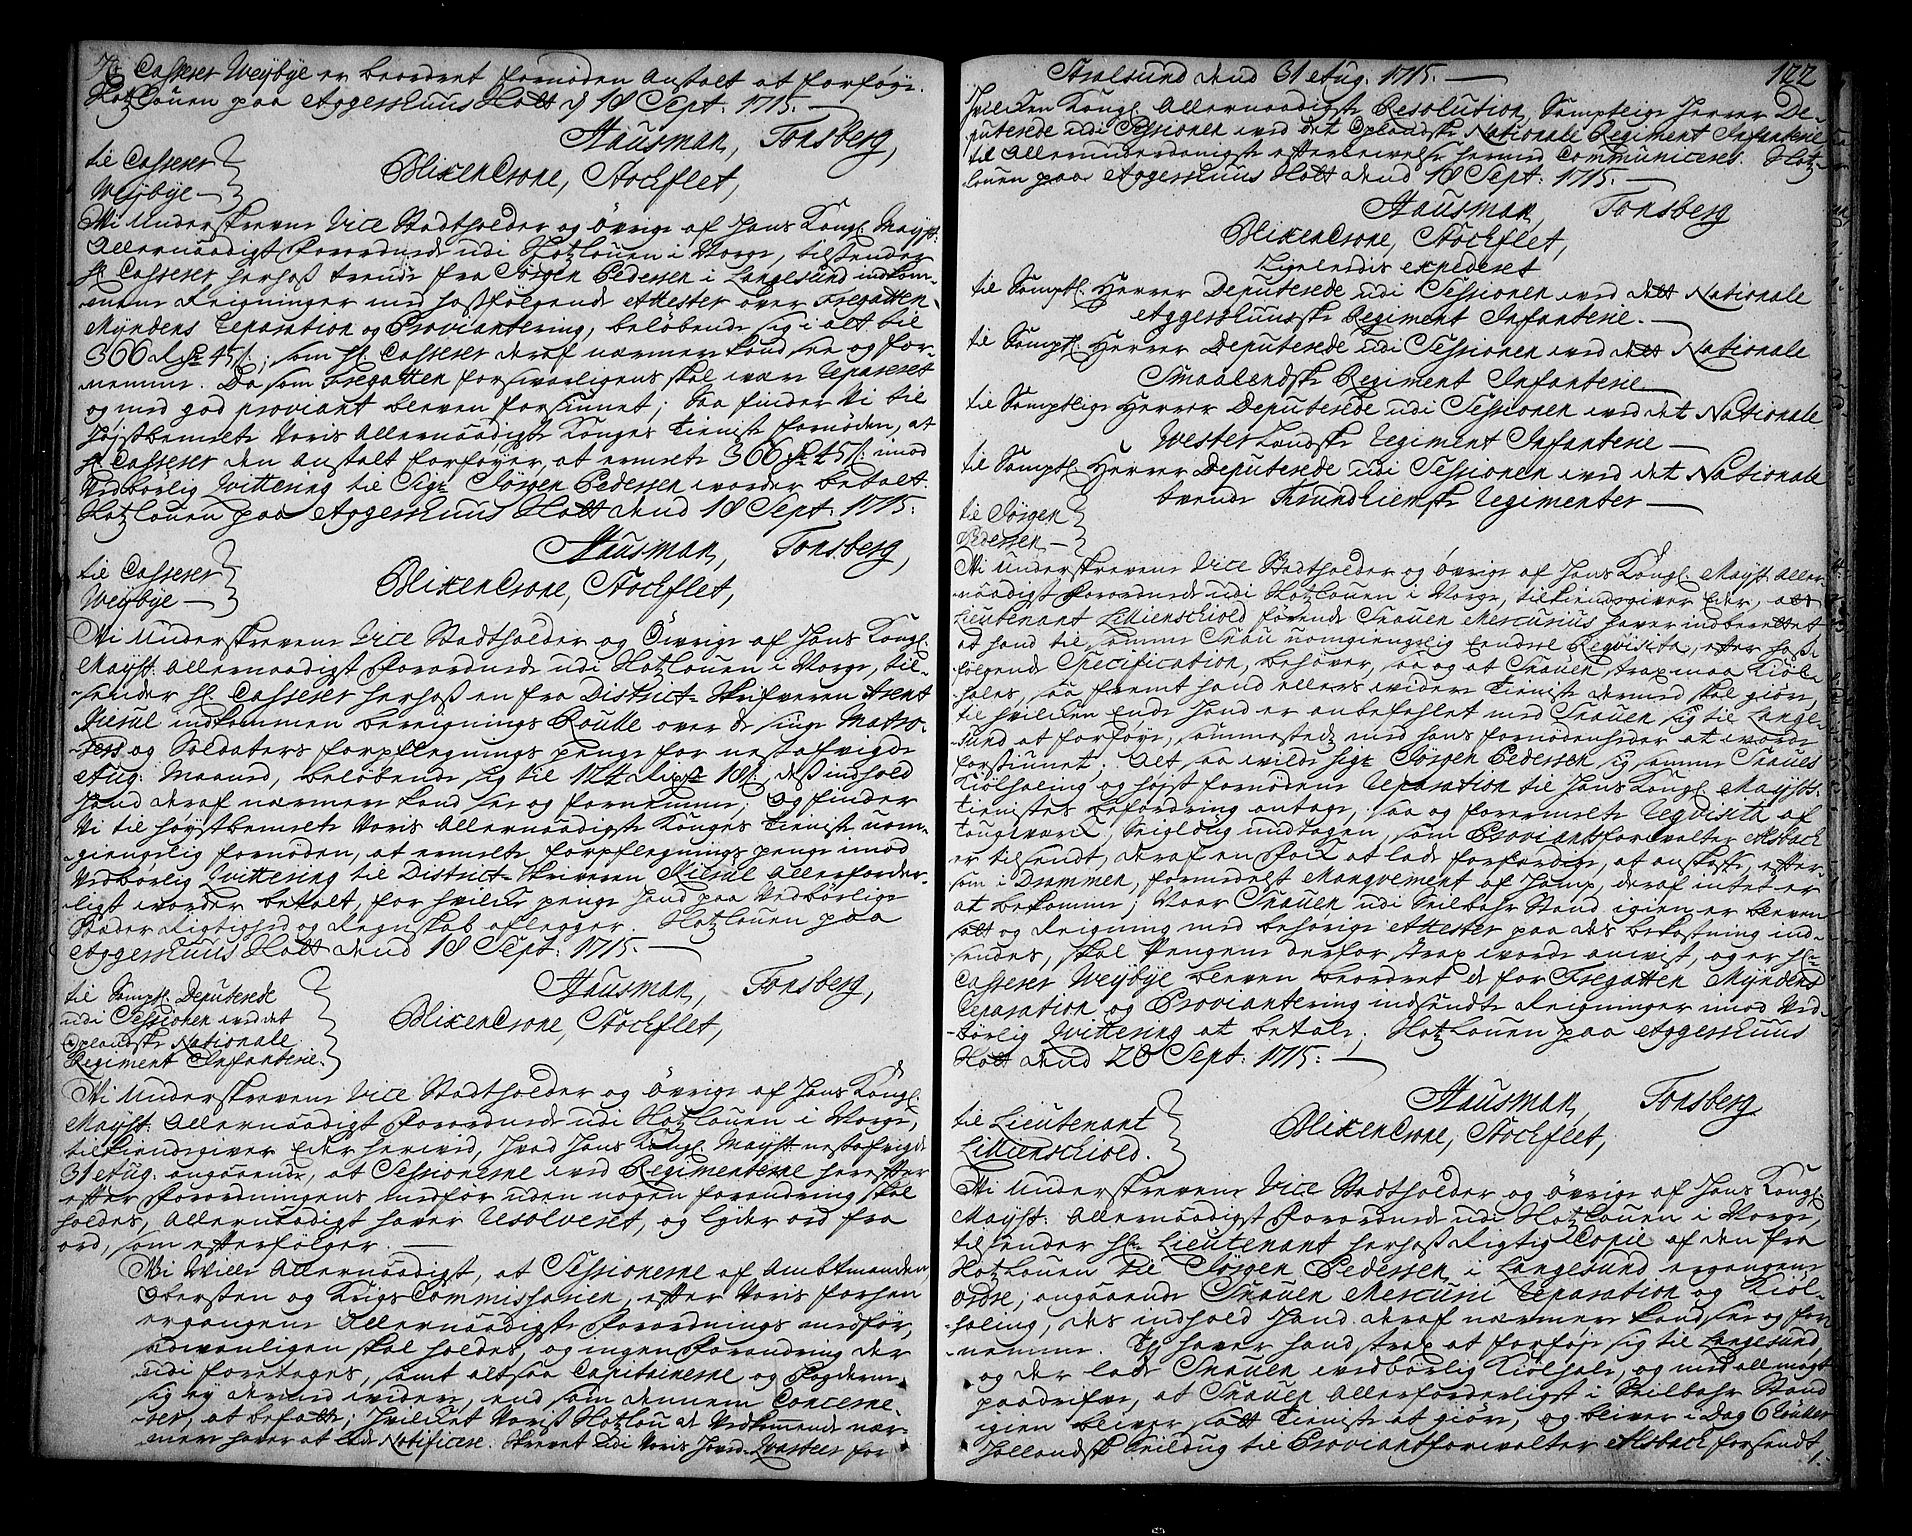 Hr Casserer Weybye er beordret fornøden Anstalt at forføye.
Slotzlouen paa Aggershuus Slott d 18 Sept: 1715.
Hausman, Tonsberg,
til Casserer
Weybye
Blixencrone, Stockflet,
Wi Underskrevene Vice Stadtholder og øvrige af Hans Kongl: Mayst:
Allernaadigst Forordnede udi Slotzlouen i Norge, tilsender
Hr Casserer herhoß trende fra Jørgen Pedersen i Langesund indkom-
mene Reigninger med hoßfølgende Attester over Fregatten
Myndens Reparation og Proviantering, beløbende sig i alt til
366 Rdr 45 s; som Hr. Casserer deraf nærmere hand see og for-
nemme. Da som Fregatten forsvarligens skal være repareret
og med god proviant bleven forsiunet; Saa finder Vi til
Høystbemelte Voris Allernaadigste Konges Tieniste fornøden, at
Hr Casserer den Anstalt forføyer, at ermelte 366 Rdr 45 s: imod
Vedbørlig Qvittering til Sigr Jørgen Pedersen worder betalt.
Slotzlouen paa Aggershuus Slott dend 18 Sept: 1715:
Hausman, Tonsberg,
til Casserer
Weybye
Blixencrone, Stockflet,
Wi Underskrevene Vice Stadtholder og Øvrige af Hans Kongl:
Mayst: Allernaadigst Forordnede udi Slotzlouen i Norge, til-
sender Hr Casserer herhoß en fra District-Skrifveren Arent
indkommen beregnings Roulle over de siuge Matro-
sers og Soldaters forpflegnings penge for nestafvigte
Aug: Maaned, beløbende sig til 124 Rdr 18 s, deß indhold
Hand deraf nærmere hand see og fornemme; Og finder
Vi til høystbemelte Voris Allernaadigste Konges Tieniste uom-
giengelig fornøden, at ermelte forpflegnings penge imod
Vedbørlig Qvittering til District-Skriveren Allerforder-
ligst worder betalt, for hvilke penge Hand paa Vedbørlige
Stæder Rigtighed og Regnskab aflegger. Slotzlouen paa
Aggershuus Slott dend 18 Sept: 1715:
Hausman, Tonsberg,
til Samptl: Deputerede
udi Sessionen ved det
Oplandske Nationale
Regiment Infanterie.
Blixencrone, Stockflet,
Wi Underskrevene Vice Stadtholder og øvrige af Hans Kongl:
Mayst: Allernaadigst Forordnede udi Slotzlouen i Norge,
tilkiendegiver Eder herved, hvad Hans Kongl: Mayst nestafvigte
31 Aug: angaaende, at Sessionerne ved Regimenterne herefter
efter Forordningens medfør uden nogen forandring skal
holdes, Allernaadigst haver Resolveret, og lyder ord fra
ord, som efterfølger.
Wi Ville Allernaadigst, at Sessionerne af Ambtmanden,
Obersten og KrigsCommissairen, efter Voris forhen
ergangene Allernaadigste Forordnings medfør,
sædvanligen skal holdes, og ingen Forandring der
udi foretages, samt altsaa Capitainerne og Fogderne
sig ey dermed videre, end som dennem Concerne-
rer, at befatte; Hvilcket Voris Slotzlou de Vedkommende nær-
mere haver at lade Notificere. Skrevet udi Voris Hoved Qvarteer for
122
Stralsund dend 31 Aug. 1715.
Hvilcken Kongl: Allernaadigste Resolution, Samptlige Herrer De-
puterede udi Sessionen ved det Oplandske Nationale Regiment Infanterie
til Allerunderdanigste efterlevelse herved Communiceres. Slotz-
louen paa Aggershuus Slott dend 18 Sept: 1715.
Hausman, Tonsberg
Blixencrone, Stockflet,
Ligeleedis expederet
til Samptl: Herrer Deputerede udi Sessionen ved dett Nationale
Aggershuusske Regiment Infanterie.
til Samptl: Herrer Deputerede udi Sessionen ved dett Nationale
Smaalendske Regiment Infanterie
til Samptlige Herrer Deputerede udi Sessionen ved det Nationale
Westerlandske Regiment Infanterie
til Samptl: Herrer Deputerede udi Sessionen ved det Nationale
tvende Trundhiemske Regimenter
til Jørgen
Pedersen
Wi Underskrevene Vice Stadtholder og øvrige af Hans Kongl: Mayst: Aller-
naadigst Forordnede udi Slotzlouen i Norge, tilkiendegiver Eder, att
Lieutenant Lillienschiold førende Snauen Mercurius haver indberettet
at hand til samme Snau uomgiengelig Eendeel Reqvisita, efter hoß-
følgende Specification, behøver, saa og at Snauen strax maa Kiøl-
hales, saa fremt hand ellers videre Tieniste dermed skal giøre,
til hvilcken Ende Hand er anbefahlet med Snauen sig til Lange-
sund at forføye, sammestæds med hans fornødenheder at worde
forsiunet. Alt saa wilde Sigr Jørgen Pedersen sig samme Snaues
Kiølhaling og høyst fornødene Reparation til Hans Kongl: Mayst:
tienistes Befordring antage, saa og forermelte Reqvisita af
Tougværck, Seigldug undtagen, som Proviantforwalter Alsback
er tilsendt, deraf en Skoik at lade forfærdige, at anskaffe, efter-
som i Drammen, formedelst Manqvement af Hamp, deraf intet er
at bekomme; Naar Snauen udi Seilbahr Stand igien er bleven
satt og Reigning med behørige Attester paa des bekostning ind-
sendes, skal Pengene derfor strax worde anvist, og er Hr
Casserer Weybye bleven beordret de for Fregatten Myndens
Reparation og Proviantering indsendte Reigninger imod Ved-
børlig Qvittering at betale; Slotzlouen paa Aggershuus
Slott dend 20 Sept: 1715:
Hausman, Tonsberg
til Lieutenant
Lillienschiold.
Blixencrone, Stockflet,
Wi Underskrevene Vice Stadtholder og øvrige af Hans Kongl:
Mayst: Allernaadigst Forordnede udi Slotzlouen i Norge,
tilsender Hr Lieutenant herhoß Rigtig Copie af den fra
Slotzlouen til Jørgen Pedersen i Langesund ergangene
ordre, angaaende Snauen Mercurii Reparation og Kiøl-
haling, des indhold Hand deraf nærmere hand see og for-
nemme. Thi haver hand strax at forføye sig til Langesund,
og der lade Snauen vedbørlig Kiølhale, og med all magt
paadrifve, at Snauen Allerforderligst i Seilbahr Stand
igien bliver satt Tieniste at giøre, og bliver i Dag 6 Ruller
Hollandsk Seildug til Proviantforwalter Alsback forsendt